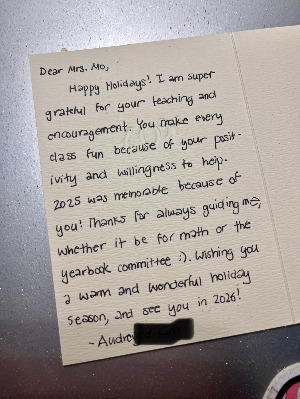 Dear Mrs. Mo,
Happy Holidays! I am super
grateful for your teaching and
encouragement. You make every
class fun because of your posit-
ivity and willingness to help.
2025 was memorable because of
you! Thanks for always guiding me,
whether it be for math or the
yearbook committee :). Wishing you
a warm and wonderful holiday
season, and see you in 2026!
- Audrey